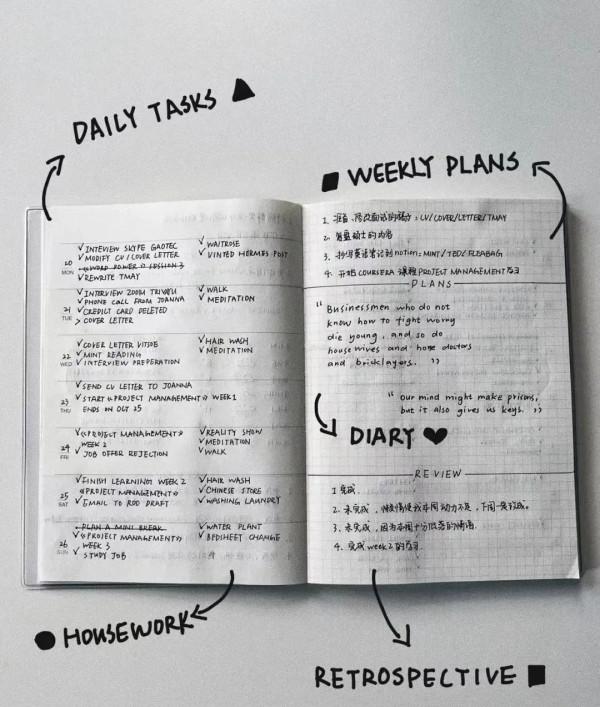 DAILY TASKS
WEEKLY PLANS
20
MON
✓ INTEVIEW SKYPE GAOTEC
✓ MODIFY CV / COVER LETTER
✓ REWRITE TMAY
✓ WAITROSE
✓ VINTED HERMES POST
21
TUE
✓ INTERVIEW ZOOM
✓ PHONE CALL FROM JOANNA
✓ CREDICT CARD DELETED
> COVER LETTER
✓ WALK
✓ MEDITATION
22
WED
✓ COVER LETTER VITSOE
✓ MINT READING
✓ INTERVIEW PREPERATION
✓ HAIR WASH
✓ MEDITATION
23
THU
✓ SEND CV LETTER TO JOANNA
✓ START 《PROJECT MANAGEMENT》 WEEK 1
ENDS ON OCT 25
24
FRI
✓ 《PROJECT MANAGEMENT》
WEEK 2
✓ JOB OFFER REJECTION
✓ REALITY SHOW
✓ MEDITATION
✓ WALK
25
SAT
✓ FINISH LEARNING WEEK 2
《PROJECT MANAGEMENT》
✓ EMAIL TO ROD DRAFT
✓ HAIR WASH
✓ CHINESE STORE
✓ WASHING LAUNDRY
26
SUN
PLAN A MINI BREAK
✓ 《PROJECT MANAGEMENT》
WEEK 3
✓ STUDY JOB
✓ WATER PLANT
✓ BEDSHEET CHANGE
1. 准备、修改面试的部分=CV/COVER/LETTER/TMAY
2. 硕士的内容
3. 英语笔记到notion=MINT/TED/FLEABAG
4. 开始COURSERA 课程 PROJECT MANAGEMENT学习
PLANS
“ Businessmen who do not
know how to fight worry
die young, and so do
housewives and horse doctors
and bricklayers. ”
“ our mind might make prisons,
but it also gives us keys. ”
DIARY
REVIEW
1 完成.
2. 未完成，
3. 未完成，因为本周十分低落的情绪.
4. 完成week2的学习.
HOUSEWORK
RETROSPECTIVE